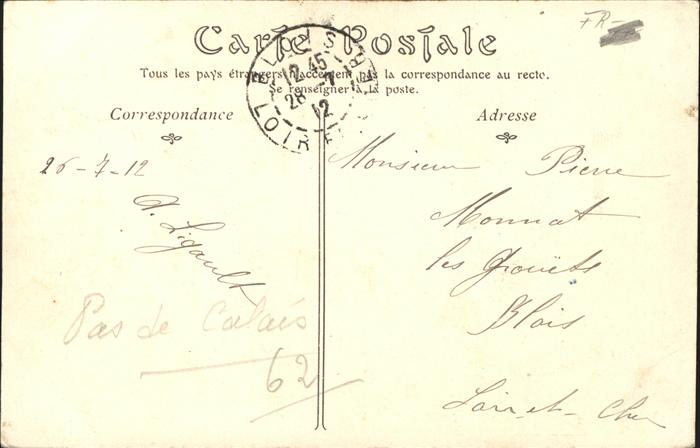 FR-
Carte Postale
Tous les pays étrangers n'acceptent pas la correspondance au recto.
Se renseigner à la poste.
12 45
28 -7
12
LOIR
Correspondance
26-7-12
A. Ligault
Pas de Calais
62
Adresse
Monsieur Pierre
Monnat
les Grouëts
Blois
Loir-et-Cher